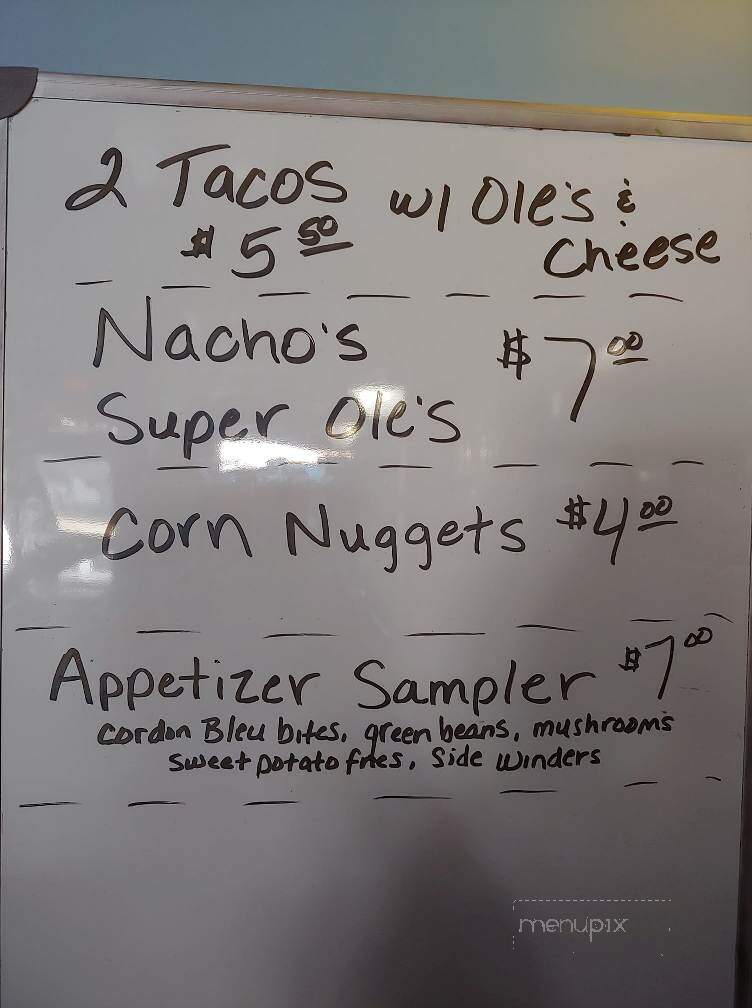 2 Tacos w/ Ole's &
$5.50 Cheese
Nacho's $7.00
Super Ole's
Corn Nuggets $4.00
Appetizer Sampler $7.00
Cordon Bleu bites, green beans, mushrooms
Sweet potato fries, Side Winders
menupix